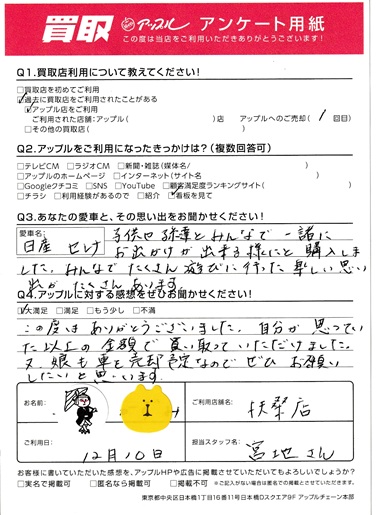 買取 アップル アンケート用紙
この度は当店をご利用いただきありがとうございます!
Q1.買取店利用について教えてください!
□買取店を初めてご利用
□過去に買取店をご利用されたことがある
□アップル店をご利用
ご利用された店舗:アップル( )店 アップルへのご売却( 1 回目)
□その他の買取店( )
Q2.アップルをご利用になったきっかけは?(複数回答可)
□テレビCM □ラジオCM □新聞・雑誌(媒体名/ )
□アップルのホームページ □インターネット(サイト名 )
□Googleクチコミ □SNS □YouTube □顧客満足度ランキングサイト( )
□チラシ □利用経験があるので □紹介 □看板を見て
Q3.あなたの愛車と、その思い出をお聞かせください!
愛車名:
日産 セレナ
子供や孫達とみんなで一緒に
お出かけが出来る様にと購入しま
した。みんなでたくさん遊びに行った楽しい思い
出がたくさんあります。
Q4.アップルに対する感想をぜひお聞かせください!
□大満足 □満足 □もう少し □不満
この度はありがとうございました。自分が思ってい
た以上の金額で買い取っていただけました。
又、娘も車を売却予定なのでぜひお願い
したいと思います。
お名前:
ご利用店舗名:
扶桑店
ご利用日:
12月10日
担当スタッフ名:
宮地さん
お客様に書いていただいた感想を、アップルHPや広告に掲載させていただいてもよろしいでしょうか?
□実名で掲載可 □匿名なら掲載可 □掲載不可 ※ご記入がない場合は匿名での掲載とさせていただきます。
東京都中央区日本橋1丁目16番11号日本橋Dスクエア9F アップルチェーン本部